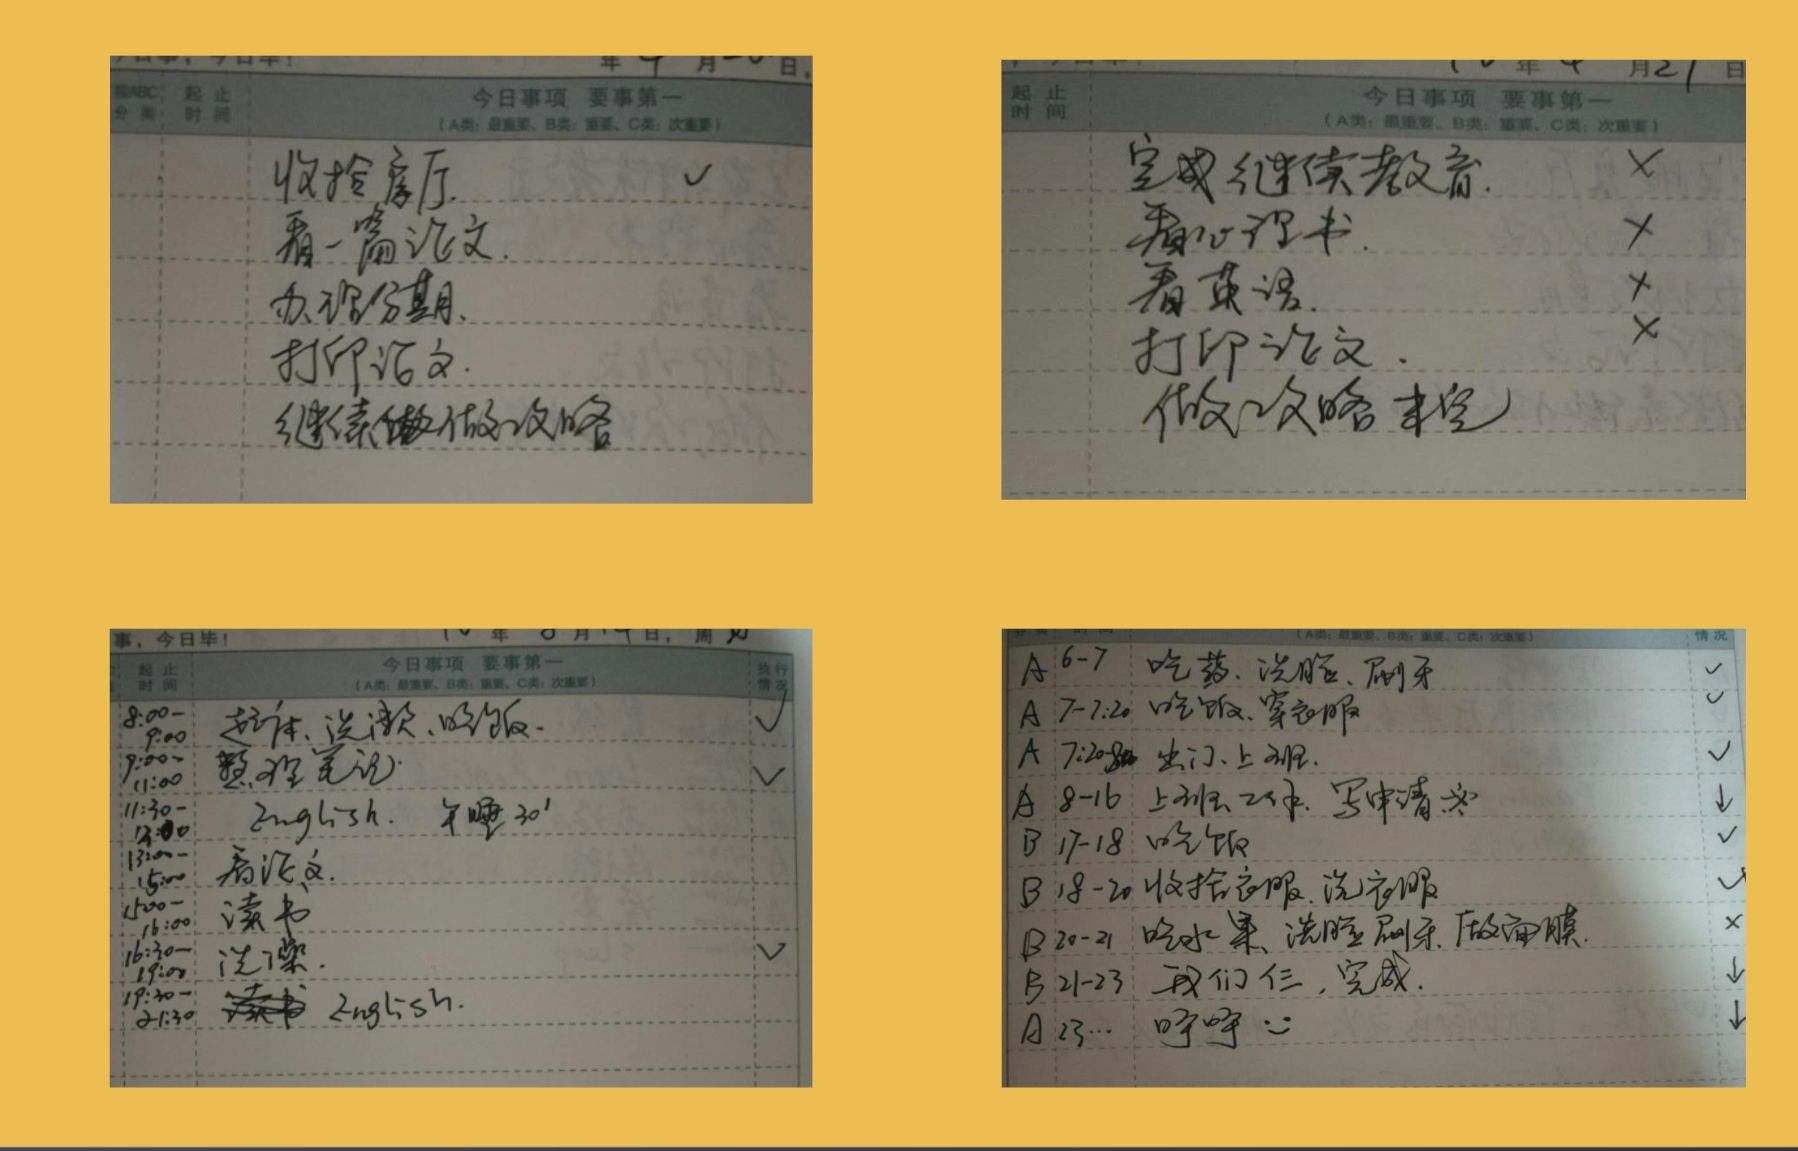 今日事，今日毕！ 年 4 月 20 日，
按ABC分类 起止时间 今日事项 要事第一
（A类：最重要、B类：重要、C类：次重要）
收拾房厅. ✓
看一篇论文.
办理分期.
打印论文.
继续做攻略
年 4 月 21 日
起止时间 今日事项 要事第一
（A类：最重要、B类：重要、C类：次重要）
完成继续教育. ×
看心理书. ×
看英语. ×
打印论文. ×
做攻略 未完
事，今日毕！ 10 年 8 月 14 日，周
起止时间 今日事项 要事第一 执行情况
（A类：最重要、B类：重要、C类：次重要）
8:00-9:00 起床、洗漱、吃饭. ✓
9:00-11:00 整理笔记 ✓
11:30-13:00 English. 午睡30'
13:00-15:00 看论文.
15:00-16:00 读书
16:30-19:00 洗澡. ✓
19:30-21:30 English.
分类 时间 （A类：最重要、B类：重要、C类：次重要） 情况
A 6-7 吃药、洗脸、刷牙 ✓
A 7-7:20 吃饭、穿衣服 ✓
A 7:20 出门、上班. ✓
A 8-16 上班工作. 写申请 ↓
B 17-18 吃饭 ✓
B 18-20 收拾衣服、洗衣服 ✓
B 20-21 吃水果、洗脸刷牙、做面膜. ×
B 21-23 我们仨，完成. ↓
A 23... 呼呼 ↓